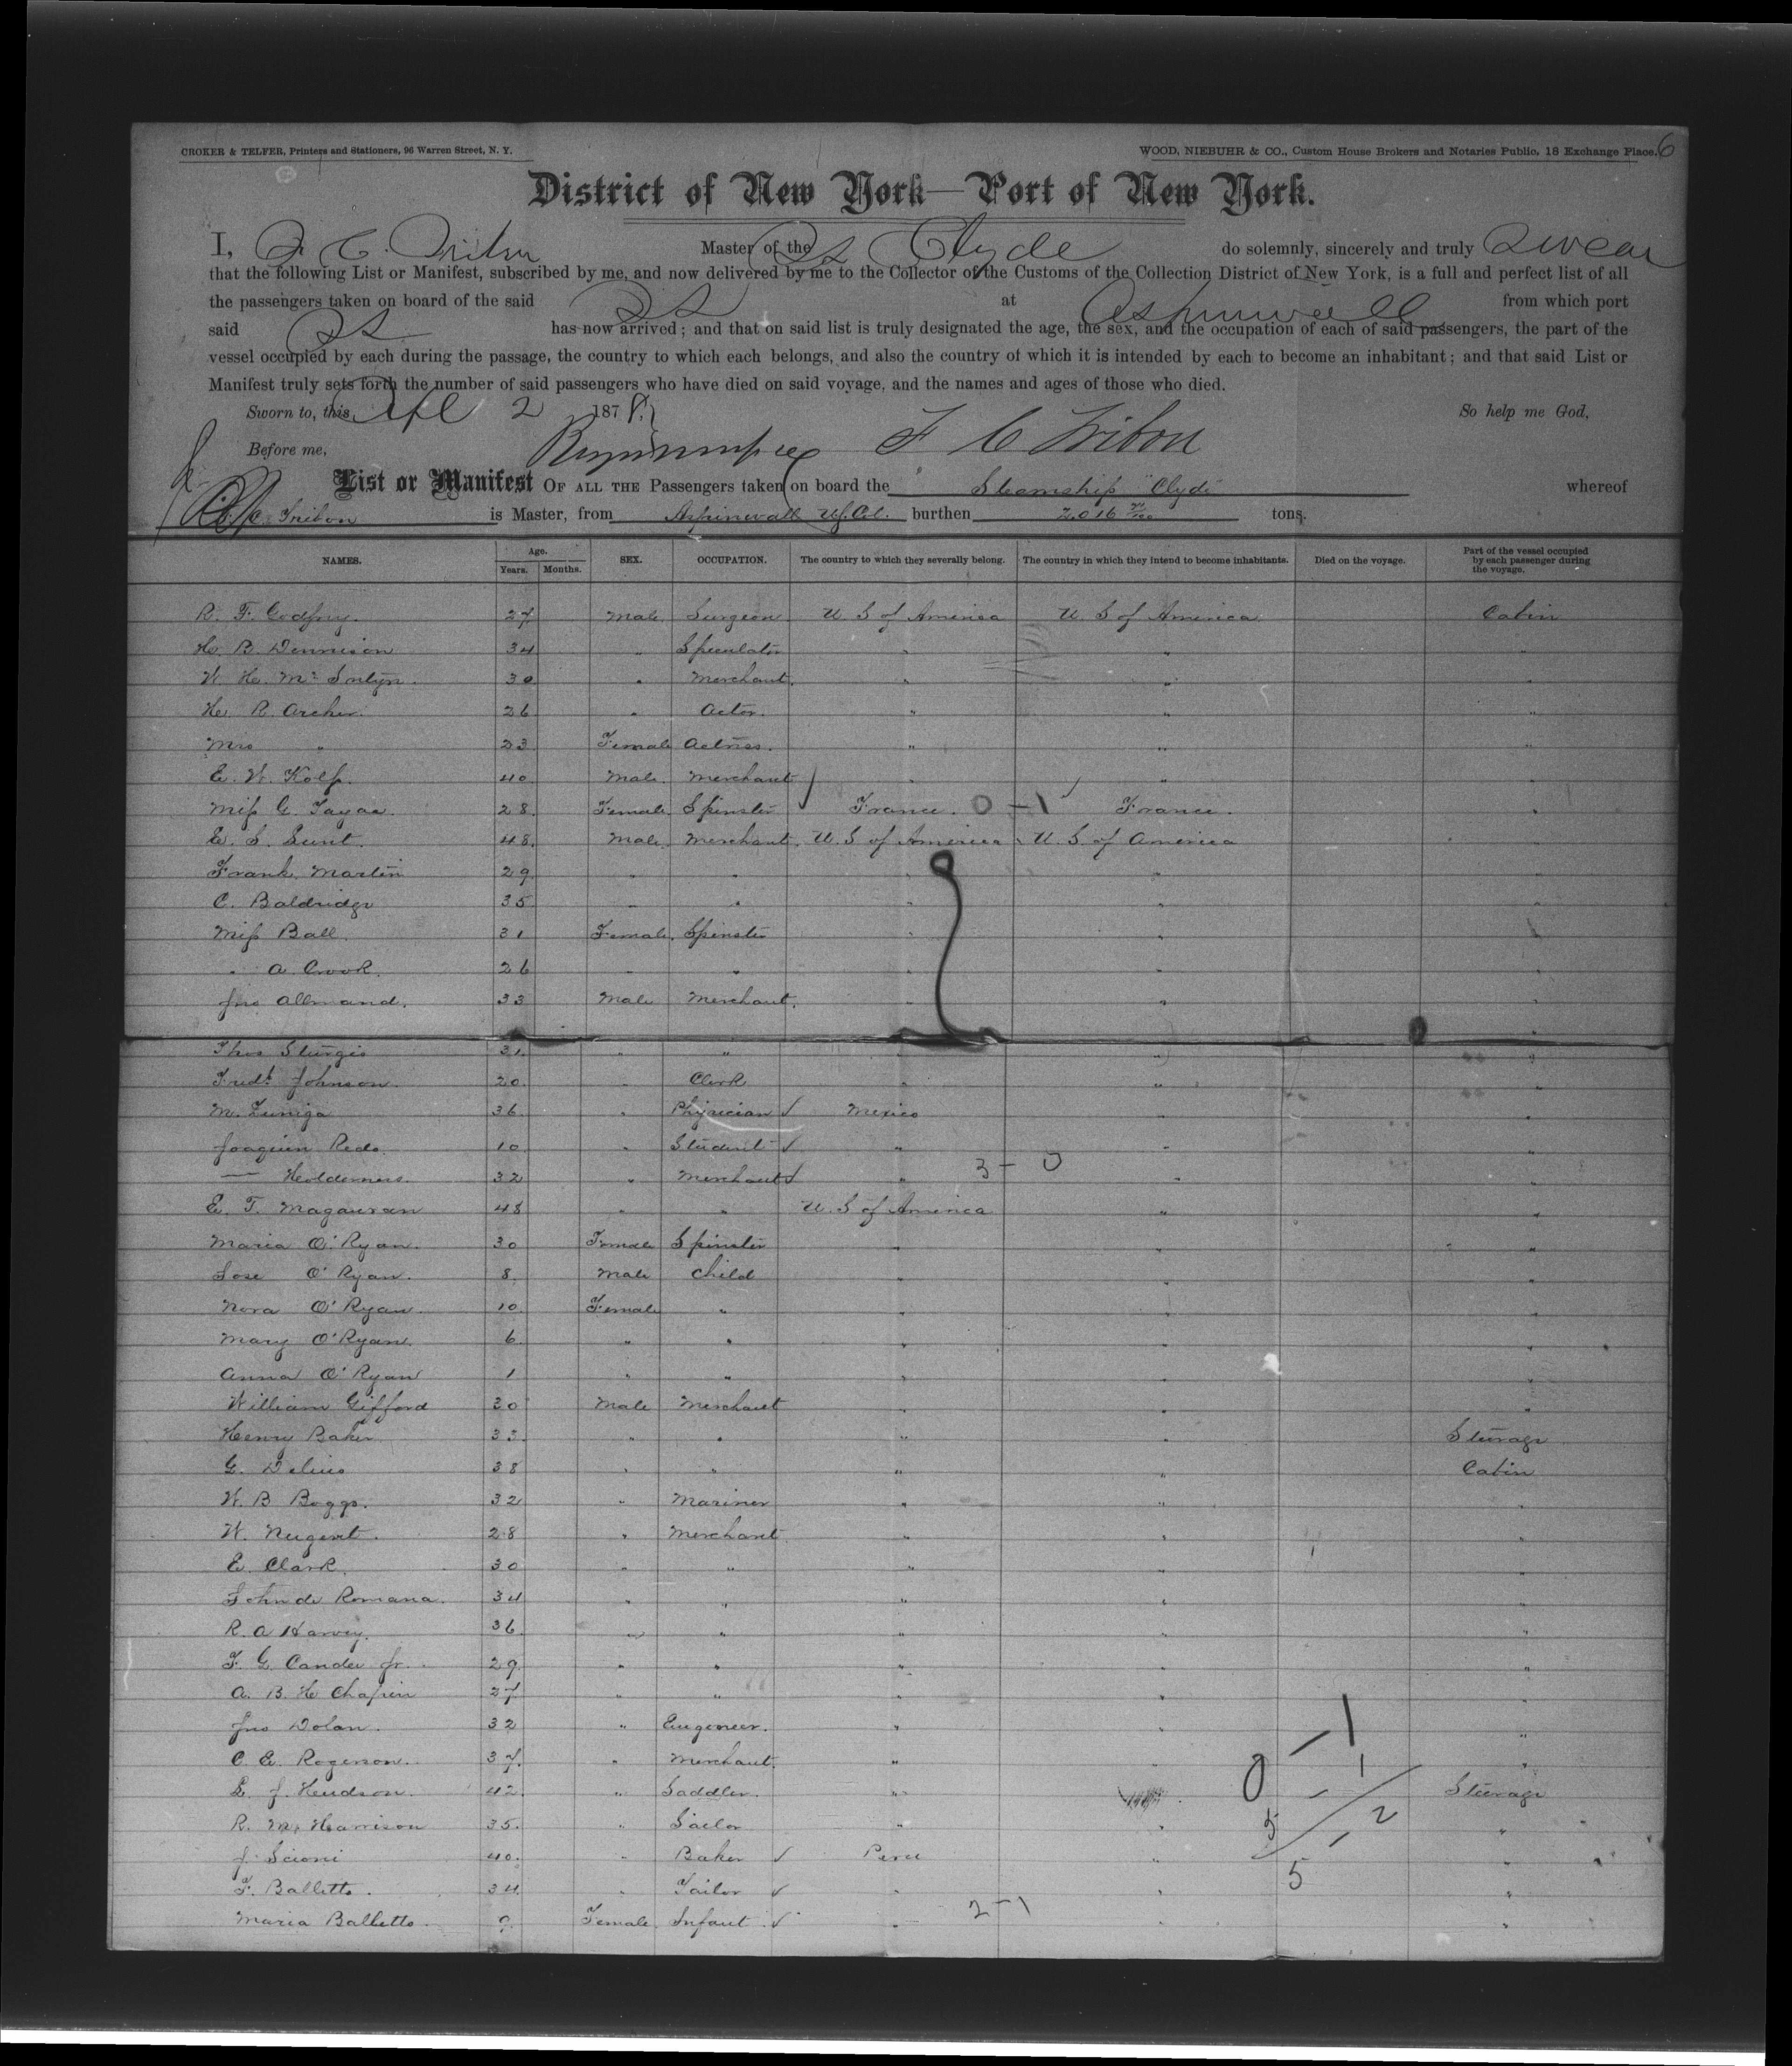 CROKER & TELFER, Printers and Stationers, 96 Warren Street, N. Y. WOOD, NIEBUHR & CO., Custom House Brokers and Notaries Public, 18 Exchange Place. 6
District of New York—Port of New York.
I, F. C. Master of the SS Clyde do solemnly, sincerely and truly swear
that the following List or Manifest, subscribed by me, and now delivered by me to the Collector of the Customs of the Collection District of New York, is a full and perfect list of all
the passengers taken on board of the said SS at Aspinwall from which port
said SS has now arrived; and that on said list is truly designated the age, the sex, and the occupation of each of said passengers, the part of the
vessel occupied by each during the passage, the country to which each belongs, and also the country of which it is intended by each to become an inhabitant; and that said List or
Manifest truly sets forth the number of said passengers who have died on said voyage, and the names and ages of those who died.
Sworn to, this Apl 2 187 So help me God,
Before me, F C Tribou
List or Manifest OF ALL THE Passengers taken on board the Steamship "Clyde" whereof
Tribou is Master, from Aspinwall burthen 2016 tons.
NAMES. Age. Years. Months. SEX. OCCUPATION. The country to which they severally belong. The country in which they intend to become inhabitants. Died on the voyage. Part of the vessel occupied by each passenger during the voyage.
R. F. Godfrey. 27 Male Surgeon U. S of America U. S of America Cabin
H. B. Dennison 34 " Speculator " " "
W. H. 30 " Merchant. " " "
H. R. Archer. 26 " Actor. " " "
Mrs " 23 Female Actress. " " "
E. W. Kolp. 40 Male. Merchant " " "
Miss G. 28 Female Spinster France. 0 – 1 France. "
E. S. 48. Male. Merchant. U. S of America U. S. of America "
Frank Martin 29 " " " " "
C. Baldridge 35 " " " " "
Miss Ball 31 Female. Spinster " " "
" A. Crook. 26 " " " " "
Jno Allmand. 33 Male Merchant. " " "
Thos Sturgis 31. " " " " "
Fredk Johnson. 20. " Clerk " " "
M. Zuniga 36 " Physician ✓ Mexico " "
Joaquin Redo. 10 " Student ✓ " " "
— Holderness. 32 " Merchant ✓ " 3 – 0 " "
E. T. Magauran 48 " " U. S of America " "
Maria O'Ryan. 30 Female Spinster " " "
Jose O'Ryan. 8. Male Child " " "
Nora O'Ryan. 10. Female " " " "
Mary O'Ryan. 6. " " " " "
Anna O'Ryan 1 " " " " "
William Gifford 30 Male Merchant " " "
Henry Baker 33. " " " " Steerage
G. Delius 38 " " " " Cabin
W. B Boggs. 32 " Mariner " " "
W. Nugent. 28 " Merchant. " " "
E. Clark. 30 " " " " "
John de Romana. 34 " " " " "
R. A Harvey. 36. " " " " "
F. G. Jr. 29. " " " " "
A. B. H Chapin 27. " " " " "
Jno Dolan. 32 " Engineer. " " "
C. E. Rogerson. 37. " Merchant. " " "
E. J. Hudson. 42. " Saddler. " Steerage
R. M. Harrison 35. " Sailor " " "
J. Scioni 40. " Baker ✓ Peru " "
F. Balletto. 34. " Tailor ✓ " " "
Maria Balletto. Female Infant ✓ " 2 – 1 " "